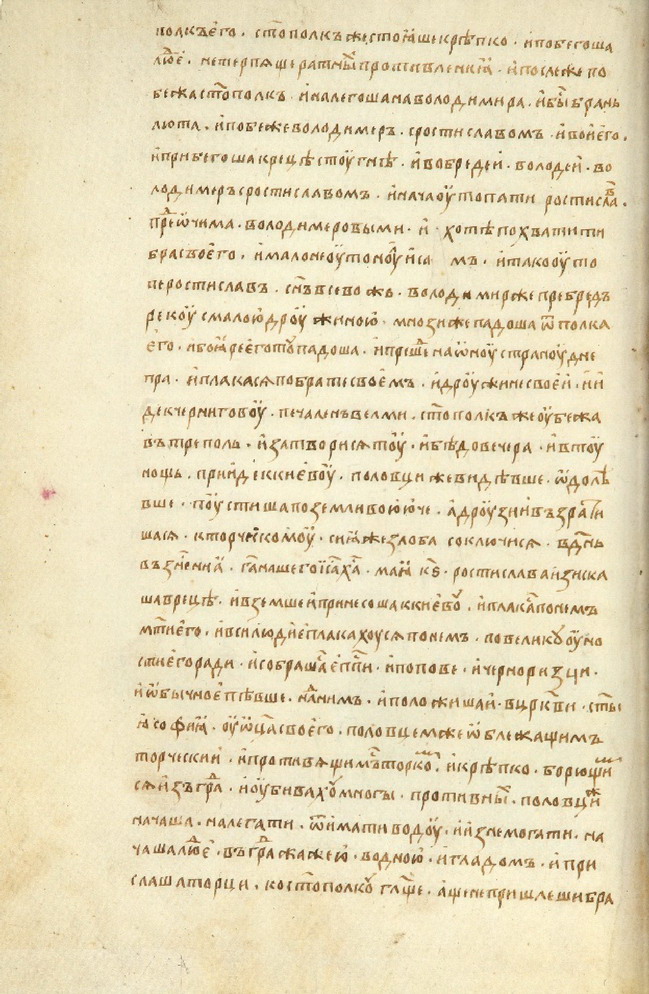 полкъ его · ст҃ополкъ же стоꙗше крѣпко · и побегоша
люд҇е · не терпѧще ратны҇ противлениꙗ · и послеже по
бежа ст҃ополк · и налегоша на володимира · и бы҇ брань
люта · и побеже володимеръ · с ростиславомъ · и вои его ·
и прибегоша к реце стоугнѣ · и вобредеи · володеи · во
лодимеръ с ростиславомъ · и нача оутопати ростисла҇в ·
пре҇д ѡчима · володимеровыми · и · хотѣ похватити
бра своего · и мало не оутоноу и са мъ · и тако оуто
пе ростиславъ · сн҃ъ всеволожь · володимиръ же пребредъ
рекоу с малою дроужиною · мнози же падоша ѿ полка
его · и боꙗре его тоу падоша · и прише҇ на ѡноу страноу дне
пра · и плакасѧ по брате своемъ · и дроужине своеи · и и
де к черниговоу · печаленъ велми · ст҃ополкъ же оубежа
въ треполь · и затворисѧ тоу · и бѣ до вечера · и в тоу
нощь · прииде к киевоу · половци же видѣвше · ѡдолѣ
вше · поустиша по земли воююче · а дроузии възрати
шасѧ · к торчискомоу · сиꙗ же злоба соключисѧ · в дн҃ь
възн҃сениꙗ · га҃ нашего іс҃а х҃а · маиꙗ к҃ѕ · ростислава изиска
ша в реце · и вземше и принесоша к киевоу · и плака҇ по немъ
мт҃и его · и вси людие плакахоусѧ по немъ · повеликоу оуно
сти его ради · и собраша҇ еп҇пи · и попове · и черноризци ·
и ѡбычное пѣвше · на҇д нимъ · и положиша и · в церкви · ст҃ы
ꙗ софиꙗ · оу ѡц҃а своего · половцем же ѡблежащимъ
торческии · и противѧщим҇ торко҇м · и крѣпко · борющи҇м
сѧ из гра҇д · и оубивахоу многы · противны҇ · половци же
начаша · налегати · ѿимати водоу · и изнемогати · на
чаша люд҇е · въ гра҇д жажею · водною · и гладомъ · и при
слаша торци · ко ст҃ополкоу гл҃ще · аще не пришлеши бра